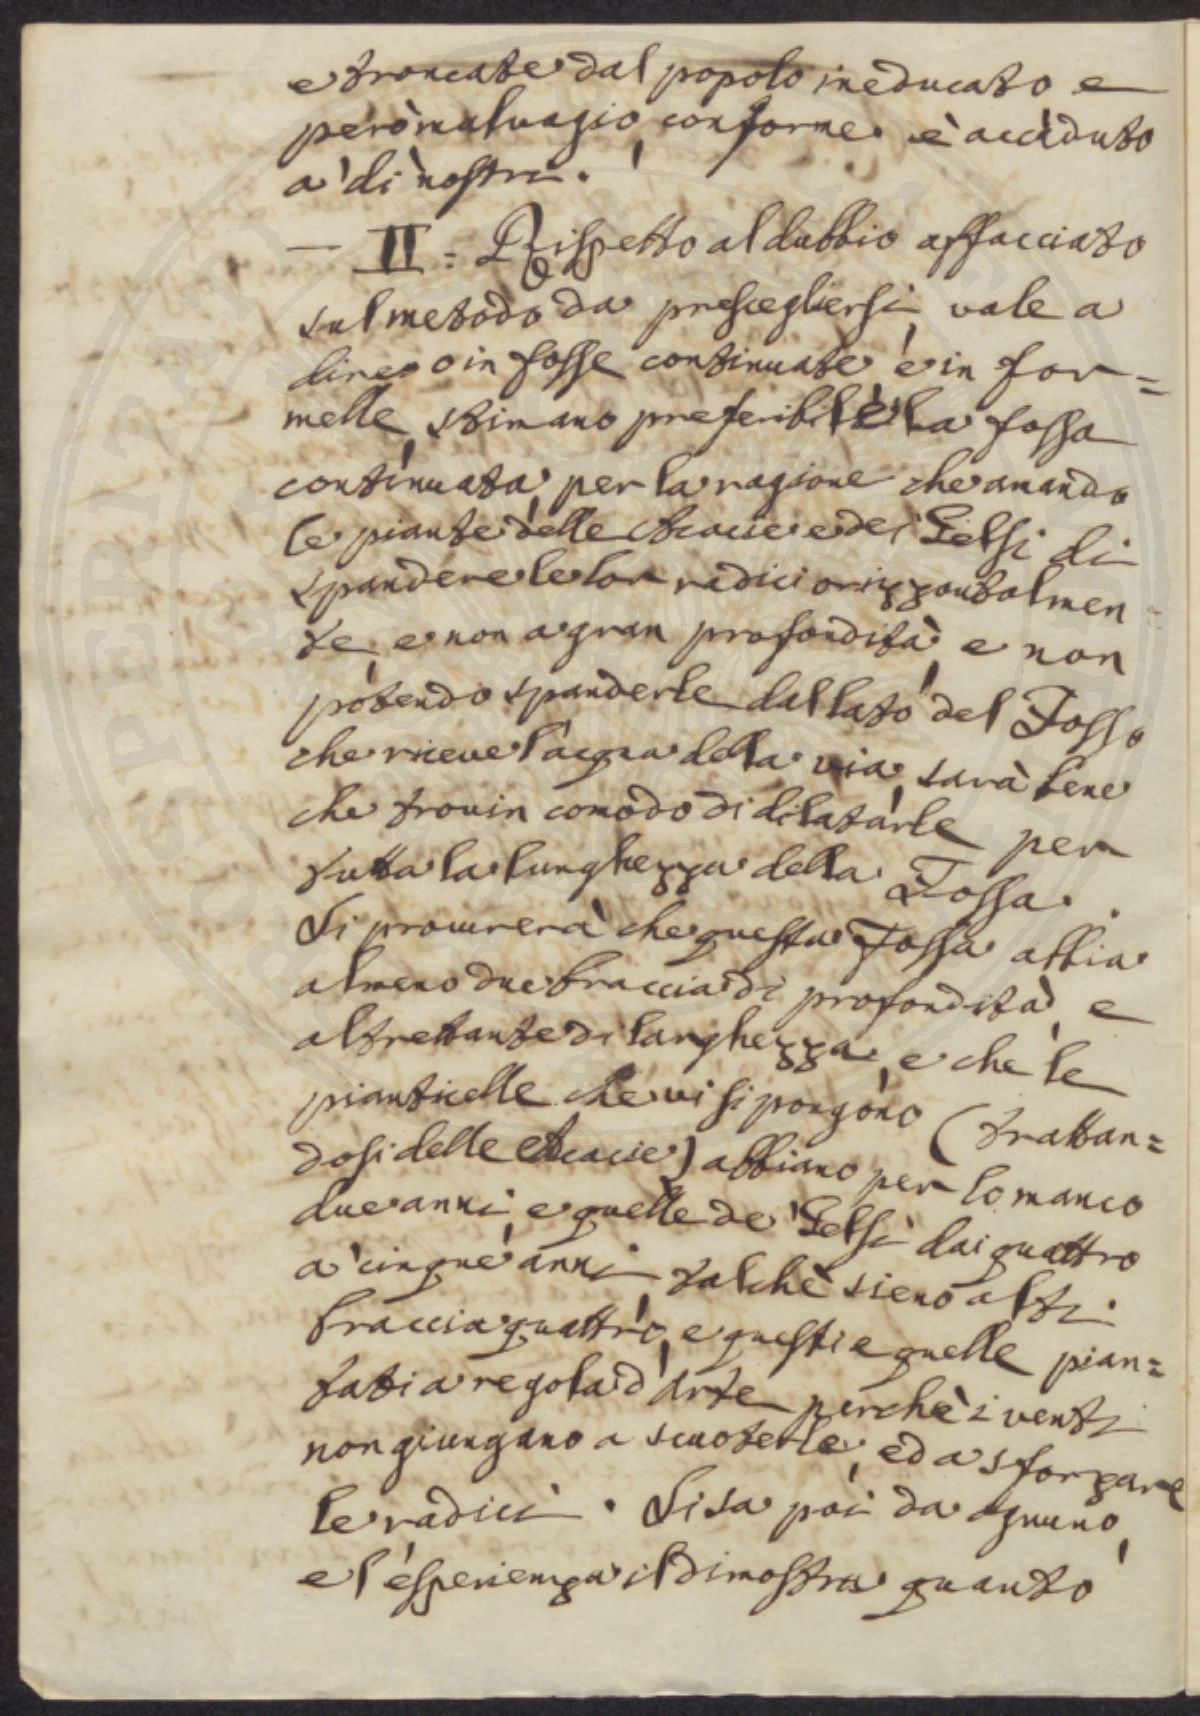 e troncate dal popolo ineducato e
però malvagio, conforme è accaduto
a' dì nostri.
— II = Rispetto al dubbio affacciato
sul metodo da prescegliersi, vale a
dire o in fosse continuate, e in for=
melle, stimano preferibile la fossa
continuata, per la ragione che amando
le piante delle Acacie e dei Gelsi di
spandere le lor radici orizzontalmen=
te, e non a gran profondità, e non
potendo spanderle dal lato del Fosso
che riceve l'acqua della via, sarà bene
che trovin comodo di dilatarle per
tutta la lunghezza della Fossa.
Si procurerà che questa Fossa abbia
almeno due braccia di profondità, e
altrettante di larghezza, e che le
pianticelle che vi si pongono (trattan=
dosi delle Acacie) abbiano per lo manco
due anni, e quelle de' Gelsi dai quattro
a' cinque anni, talchè sieno alti
braccia quattro, e questi e quelle pian=
tati a regola d'arte, perchè i venti
non giungano a scuoterle, ed a sforzare
le radici. Si sa poi da ognuno,
e l'esperienza il dimostra quanto
PROSPERITATI